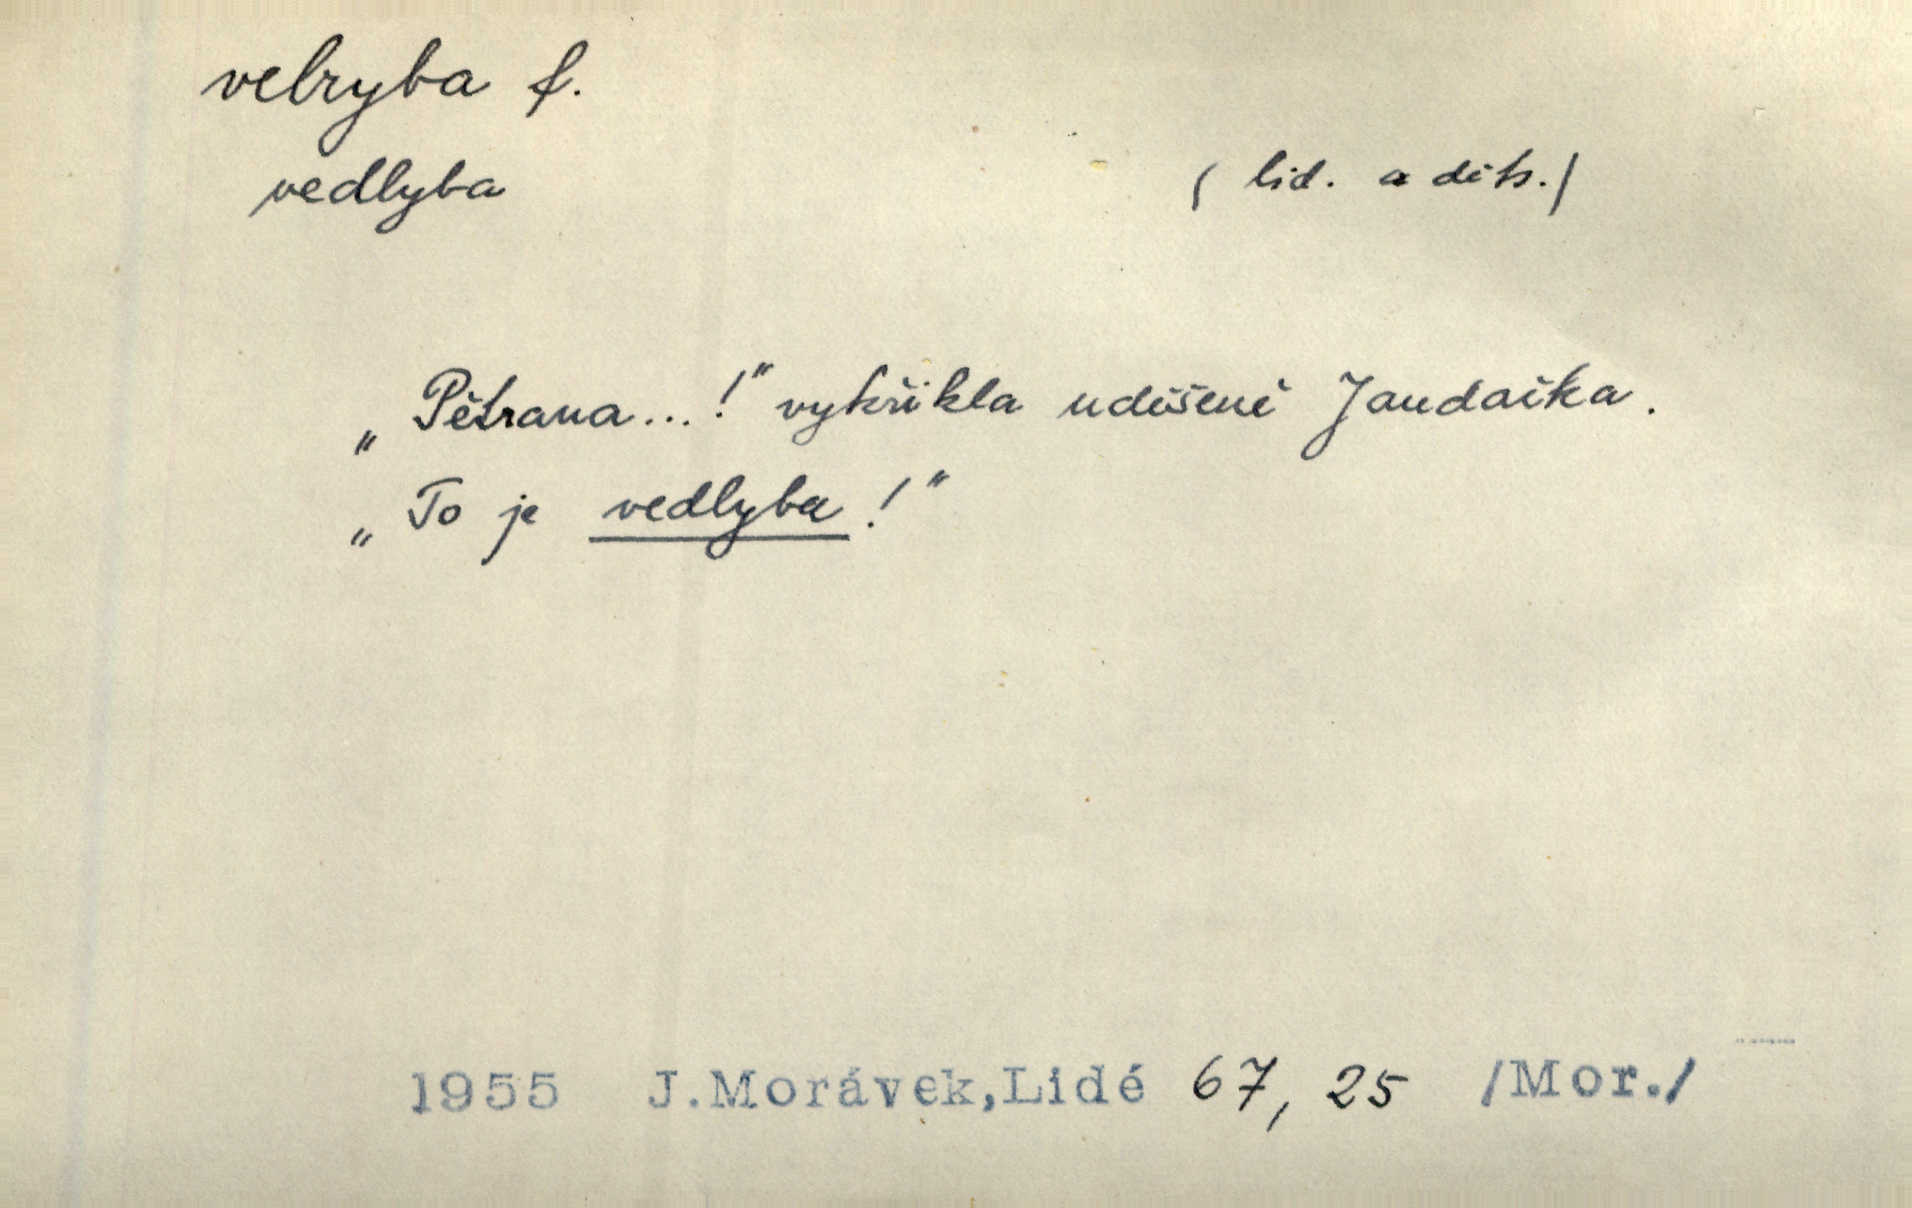 velryba f.
vedlyba ( lid. a dět. )
„Pětrana...!" vykřikla uděšeně Jandačka.
„To je vedlyba!"
1955 J.Morávek,Lidé 67, 25 /Mor./